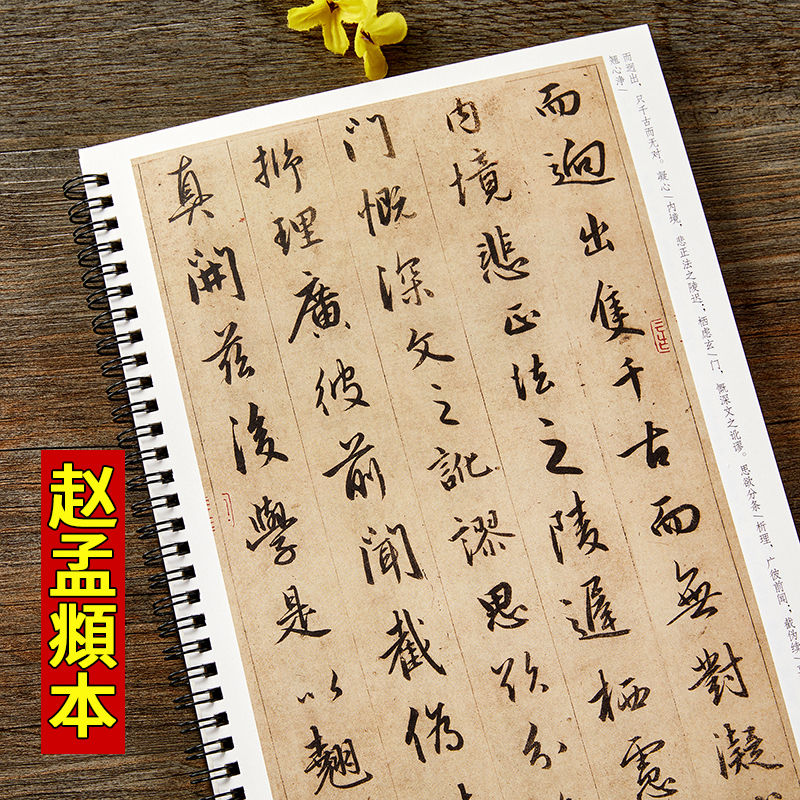 而迥出，只千古而无对。凝心/内境，悲正法之陵迟；栖虑玄/门，慨深文之讹谬。思欲分条/析理，广彼前闻；截伪续
翘心净/
而迥出隻千古而無對凝
内境悲正法之陵遲栖慮
门慨深文之訛謬思欲分
析理廣彼前聞截偽
真開茲後學是以翹
赵孟頫本